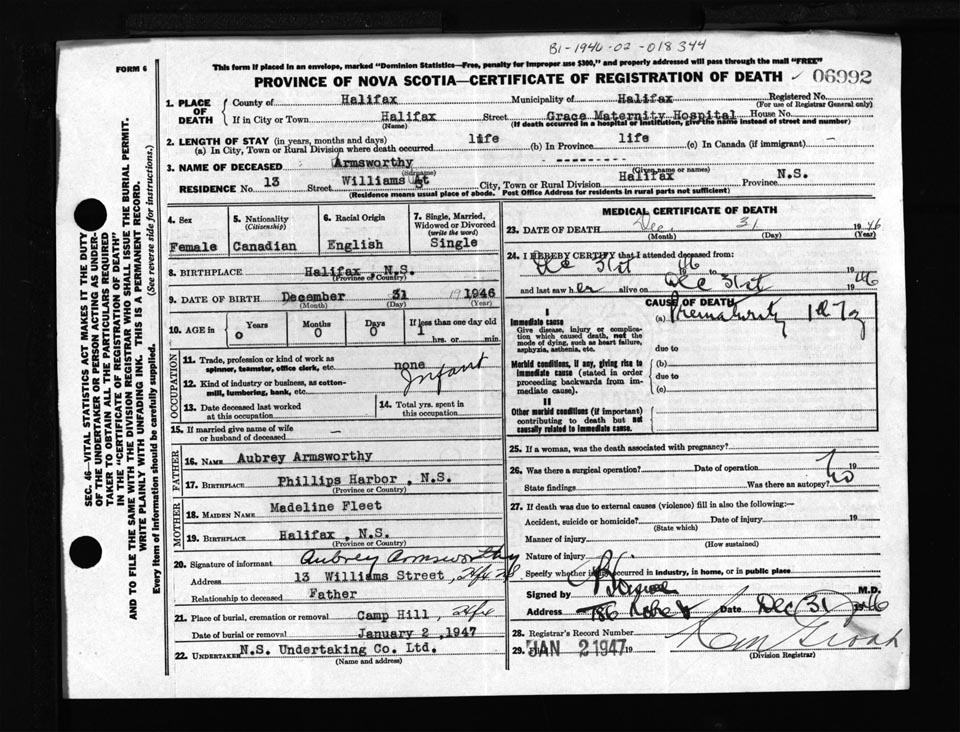 B1-1946-02-018344
FORM 6
This form if placed in an envelope, marked "Dominion Statistics—Free, penalty for improper use $300," and properly addressed will pass through the mail "FREE"
PROVINCE OF NOVA SCOTIA—CERTIFICATE OF REGISTRATION OF DEATH 06992
1. PLACE OF DEATH
County of Halifax Municipality of Halifax Registered No.
(For use of Registrar General only)
If in City or Town Halifax Street Grace Maternity Hospital House No.
(Name) (If death occurred in a hospital or institution, give the name instead of street and number)
2. LENGTH OF STAY (in years, months and days)
(a) In City, Town or Rural Division where death occurred life (b) In Province life (c) In Canada (if immigrant) —
3. NAME OF DECEASED Armsworthy ---------
(Surname) (Given name or names)
RESIDENCE No. 13 Street Williams St City, Town or Rural Division Halifax Province N.S.
(Residence means usual place of abode. Post Office Address for residents in rural parts not sufficient)
4. Sex
Female
5. Nationality
(Citizenship)
Canadian
6. Racial Origin
English
7. Single, Married,
Widowed or Divorced
(write the word)
Single
8. BIRTHPLACE Halifax, N.S.
(Province or Country)
9. DATE OF BIRTH December 31 1946
(Month) (Day) (Year)
10. AGE in
Years
0
Months
0
Days
0
If less than one day old
1
hrs. or min.
OCCUPATION
11. Trade, profession or kind of work as
spinner, teamster, office clerk, etc. none
12. Kind of industry or business, as cotton-
mill, lumbering, bank, etc. Infant
13. Date deceased last worked
at this occupation
14. Total yrs. spent in
this occupation
15. If married give name of wife
or husband of deceased —
FATHER
16. NAME Aubrey Armsworthy
17. BIRTHPLACE Phillips Harbor, N.S.
(Province or Country)
MOTHER
18. MAIDEN NAME Madeline Fleet
19. BIRTHPLACE Halifax, N.S.
(Province or Country)
20. Signature of informant Aubrey Armsworthy
Address 13 Williams Street, Hfx NS
Relationship to deceased Father
21. Place of burial, cremation or removal Camp Hill, Hfx
Date of burial or removal January 2, 1947
22. UNDERTAKER N.S. Undertaking Co. Ltd.
(Name and address)
MEDICAL CERTIFICATE OF DEATH
23. DATE OF DEATH Dec. 31 1946
(Month) (Day) (Year)
24. I HEREBY CERTIFY that I attended deceased from
Dec 31st 46 to 19
and last saw her alive on Dec 31st 1946
CAUSE OF DEATH
I
Immediate cause (a) Prematurity
Give disease, injury or complica-
tion which caused death, not the
mode of dying, such as heart failure,
asphyxia, asthenia, etc. due to
Morbid conditions, if any, giving rise to
immediate cause (stated in order
proceeding backwards from im-
mediate cause).
(b)
due to
(c)
II
Other morbid conditions (if important)
contributing to death but not
causally related to immediate cause.
25. If a woman, was the death associated with pregnancy?
26. Was there a surgical operation? Date of operation 19
State findings Was there an autopsy? No
27. If death was due to external causes (violence) fill in also the following:—
Accident, suicide or homicide? Date of injury 19
(State which)
Manner of injury
(How sustained)
Nature of injury
Specify whether injury occurred in industry, in home, or in public place
Signed by M.D.
Address 786 Robie St Date Dec 31 1946
28. Registrar's Record Number
29. JAN 2 1947 19
(Division Registrar)
SEC. 46—VITAL STATISTICS ACT MAKES IT THE DUTY
OF THE UNDERTAKER OR PERSON ACTING AS UNDER-
TAKER TO OBTAIN ALL THE PARTICULARS REQUIRED
IN THE "CERTIFICATE OF REGISTRATION OF DEATH"
AND TO FILE THE SAME WITH THE DIVISION REGISTRAR WHO SHALL ISSUE THE BURIAL PERMIT.
WRITE PLAINLY WITH UNFADING INK. THIS IS A PERMANENT RECORD.
Every item of Information should be carefully supplied. (See reverse side for instructions.)